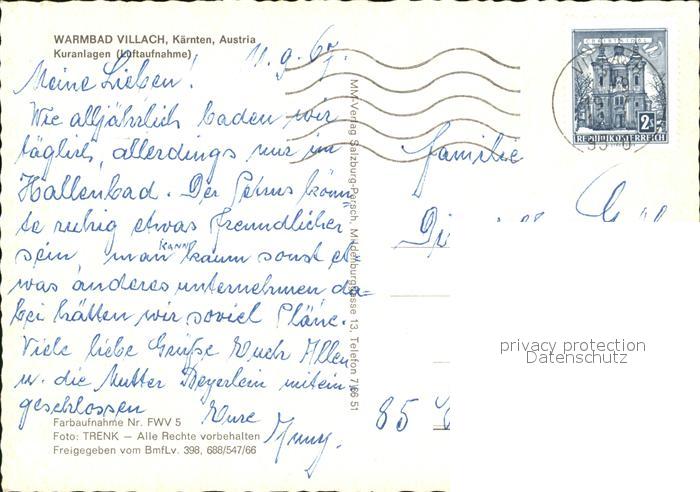 WARMBAD VILLACH, Kärnten, Austria
Kuranlagen (Luftaufnahme)
11.9.67.
Meine Lieben!
Wie alljährlich baden wir
täglich, allerdings nur im
Hallenbad. Der Petrus könn-
te ruhig etwas freundlicher
sein, man kann kaum sonst et-
was anderes unternehmen da-
bei hätten wir soviel Pläne.
Viele liebe Grüße Euch Allen
u. die Mutter Beyerlein mitein-
geschlossen
Eure
Farbaufnahme Nr. FWV 5
Foto: TRENK — Alle Rechte vorbehalten
Freigegeben vom BmfLv. 398, 688/547/66
MM-Verlag Salzburg-Parsch, Mildenburggasse 13, Telefon 7 66 51
CHRISTKINDL
2
REPUBLIK ÖSTERREICH
Familie
85
privacy protection
Datenschutz